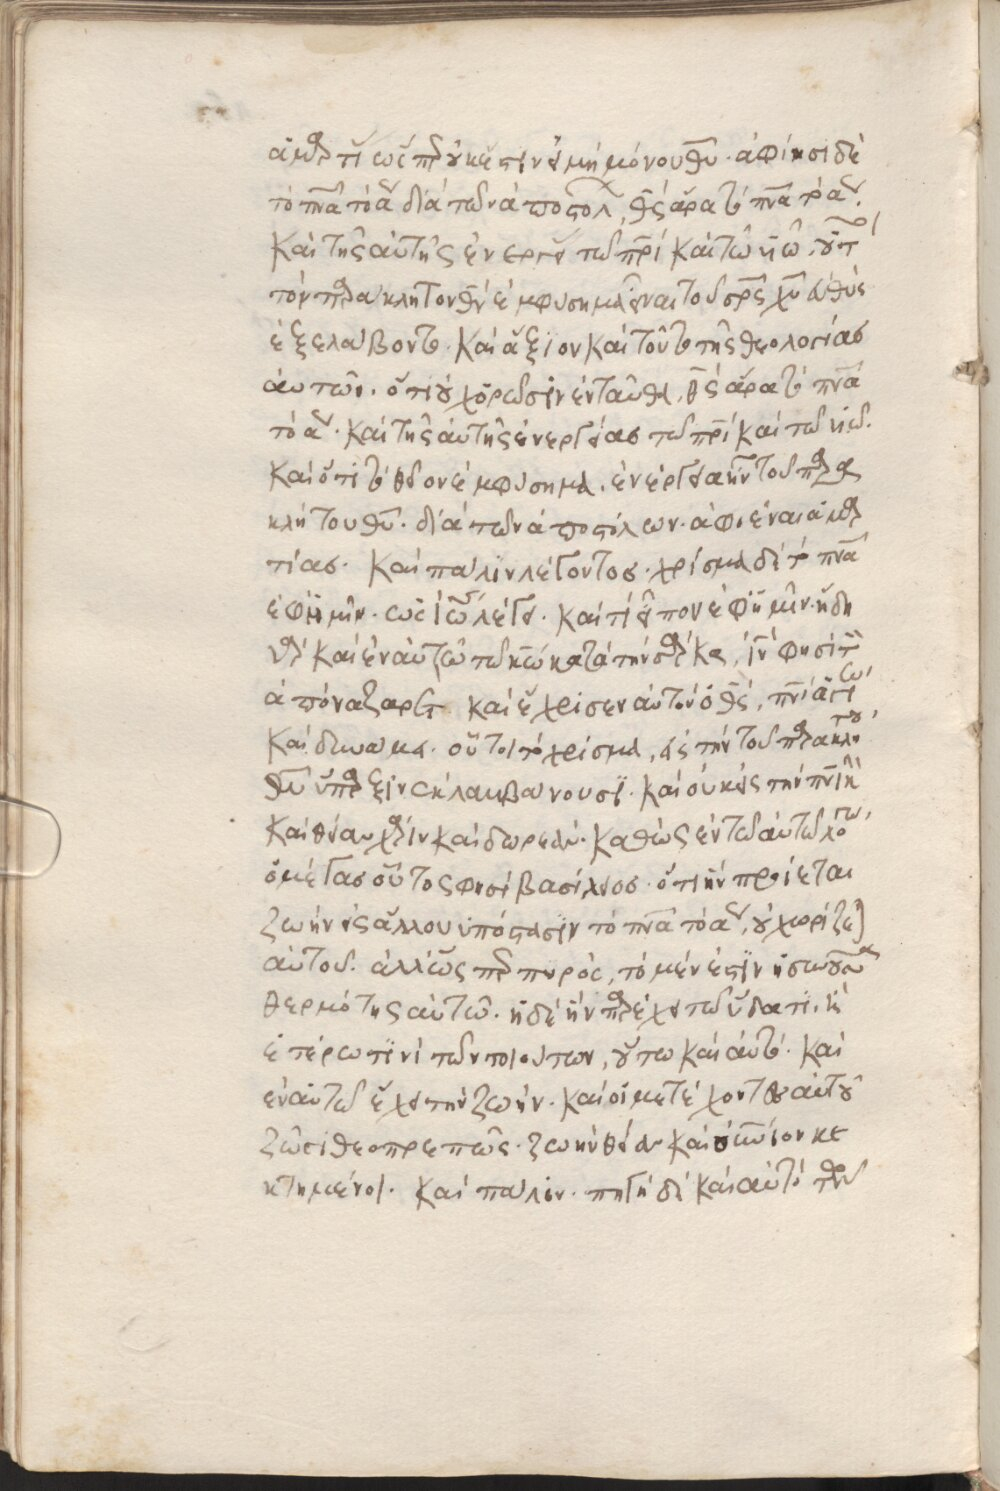 ἁμαρτί ὡς περ οὐκ ἔστιν εἰ μὴ μόνου θυ. ἀφίησι δὲ
τὸ πνα τὸ ἅ διὰ τῶν ἀποστολ, θς ἄρα τὸ πνα τὸ ἅ.
καὶ τῆς αὐτῆς ἐνεργεί τῶ πρι καὶ τῶ υἱῶ.
τὸν παράκλητον θν ἐμφύσημα εἶναι τοῦ σρς χυ
ἐξελάβοντο. καὶ ἄξιον καὶ τοῦτο τῆς θεολογίας
αὐτῶν. ὅτι οὐ χωροῦσιν ἐνταῦθα, θς ἄρα τὸ πνα
τὸ ἅ. καὶ τῆς αὐτῆς ἐνεργείας τῶ πρι καὶ τῶ υἱῶ.
καὶ ὅτι τὸ θεῖον ἐμφύσημα. ἐνέργεια ἦν τοῦ παρα
κλήτου θυ. διὰ τῶν ἀποστόλων. ἀφιέναι ἁμαρ
τίας. καὶ πάλιν λέγοντος. χρίσμα δὲ τὸ πνα
ἐφ ἡμῖν. ὡς ἰω λέγει. καὶ τί εἶπον ἐφ ἡμῖν. ἤδη
καὶ ἐν αὐτῶ τῶ κω κατὰ τὴν σάρκα, ιν φησὶ τὸν
ἀπὸ ναζαρετ καὶ ἔχρισεν αὐτὸν ὁ θς, πνι ἁγίω
καὶ δυνάμει. οὗτοι τὸ χρίσμα, εἰς τὴν τοῦ παρακλήτου
θυ ὕπαρξιν ἐκλαμβάνουσι. καὶ οὐκ εἰς τὴν πνικὴν
καὶ θείαν χάριν καὶ δωρεάν. καθὼς ἐν τῶ αὐτῶ λόγω
ὁ μέγας οὗτος φησὶ βασίλειος. ὅτι ἣν προίεται
ζωὴν εἰς ἄλλου ὑπόστασιν τὸ πνα τὸ ἅ, οὐ χωρίζεται
αὐτοῦ. ἀλλ ὥσπερ πυρὸς, τὸ μέν ἐστιν ἡ συνοῦσα
θερμότης αὐτῶ. ἡ δὲ ἣν παρέχει τῶ ὕδατι, ἢ
ἑτέρω τινὶ τῶν τοιούτων, οὕτω καὶ αὐτὸ. καὶ
ἐν αὐτῶ ἔχει τὴν ζωήν. καὶ οἱ μετέχοντες αὐτοῦ
ζῶσι θεοπρεπῶς. ζωὴν θείαν καὶ οὐνιον κε
κτημένοι. καὶ πάλιν. πηγὴ δὲ καὶ αὐτὸ